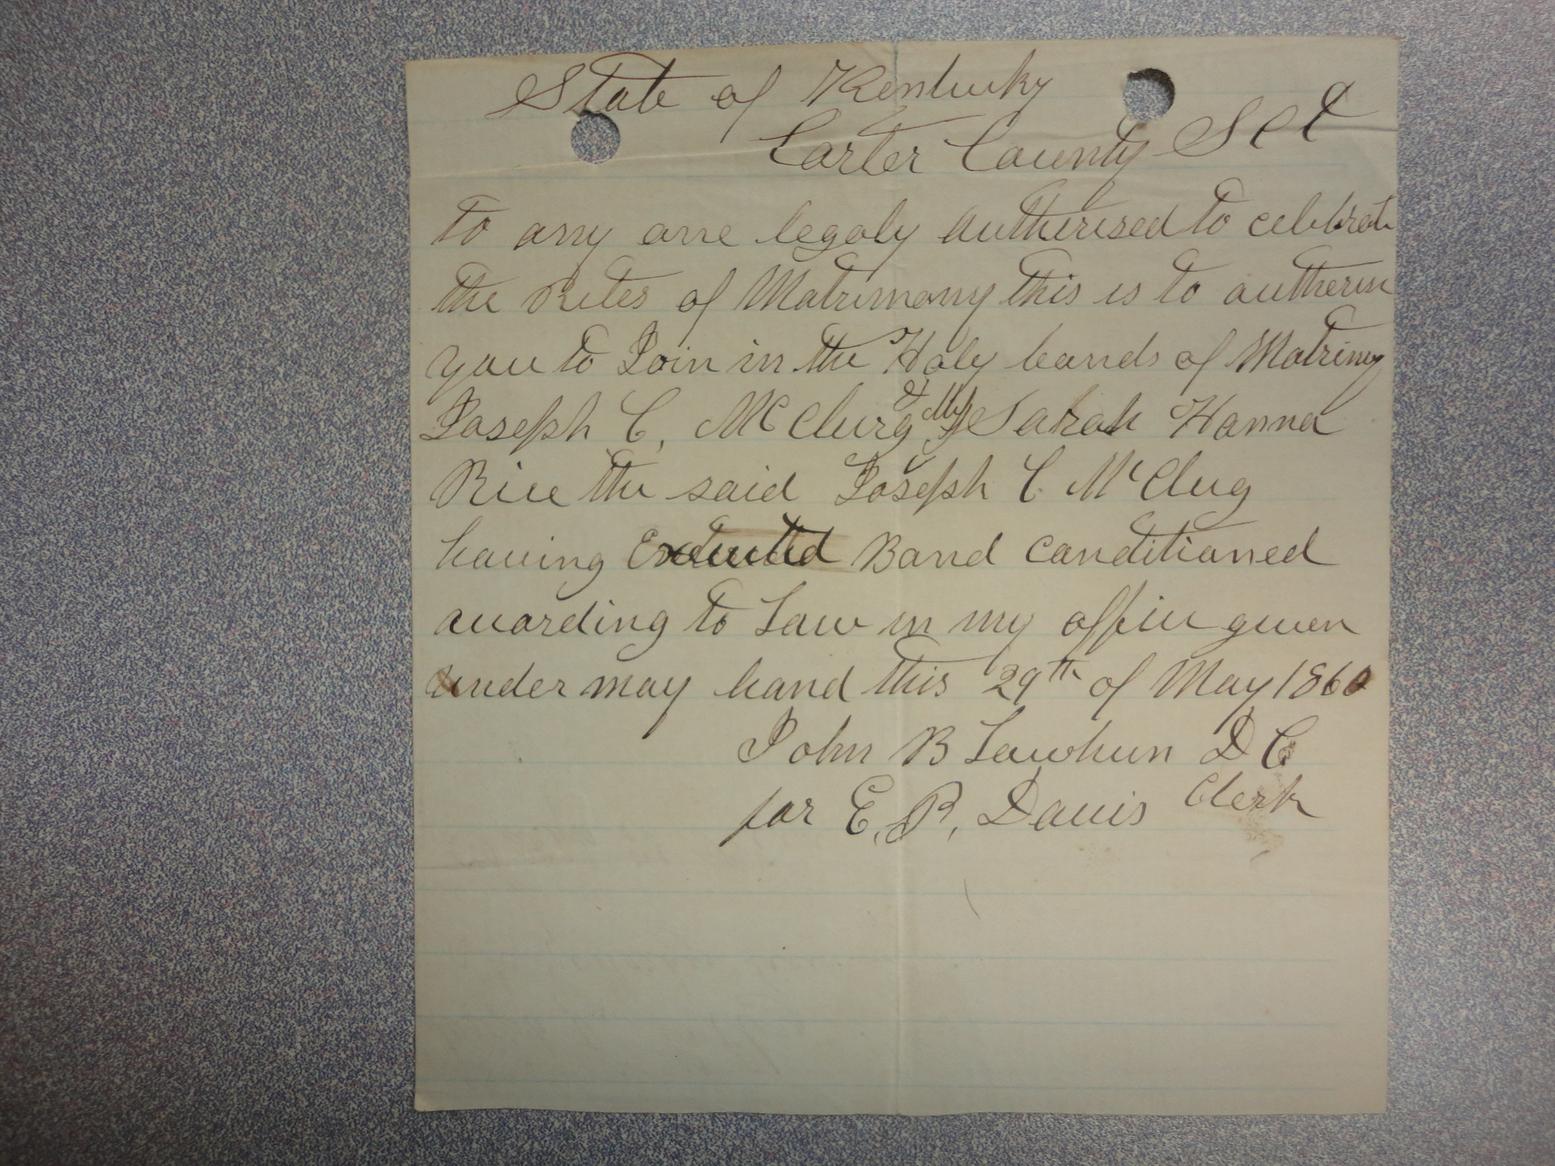 State of Kentucky
Carter County Sct
To any one legaly Autherised to celebrate
the Rites of Matrimony this is to autherise
you to Join in the Holy bands of Matrimy
Joseph C, McClurg & Miss Sarah Hanna
Rice the said Joseph C McClug
having Executed Bond conditioned
according to Law in my office given
under may hand this 29th of May 1860
John B Lawhun D C
for E. B. Davis Clerk